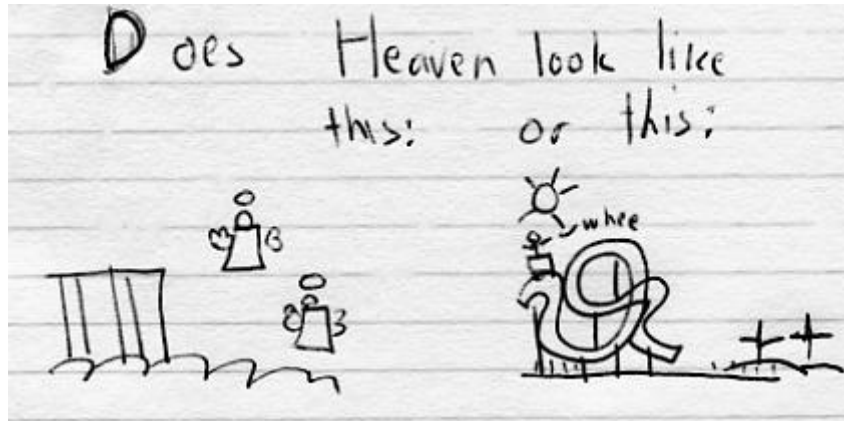 Does Heaven look like
this: or this:
whee